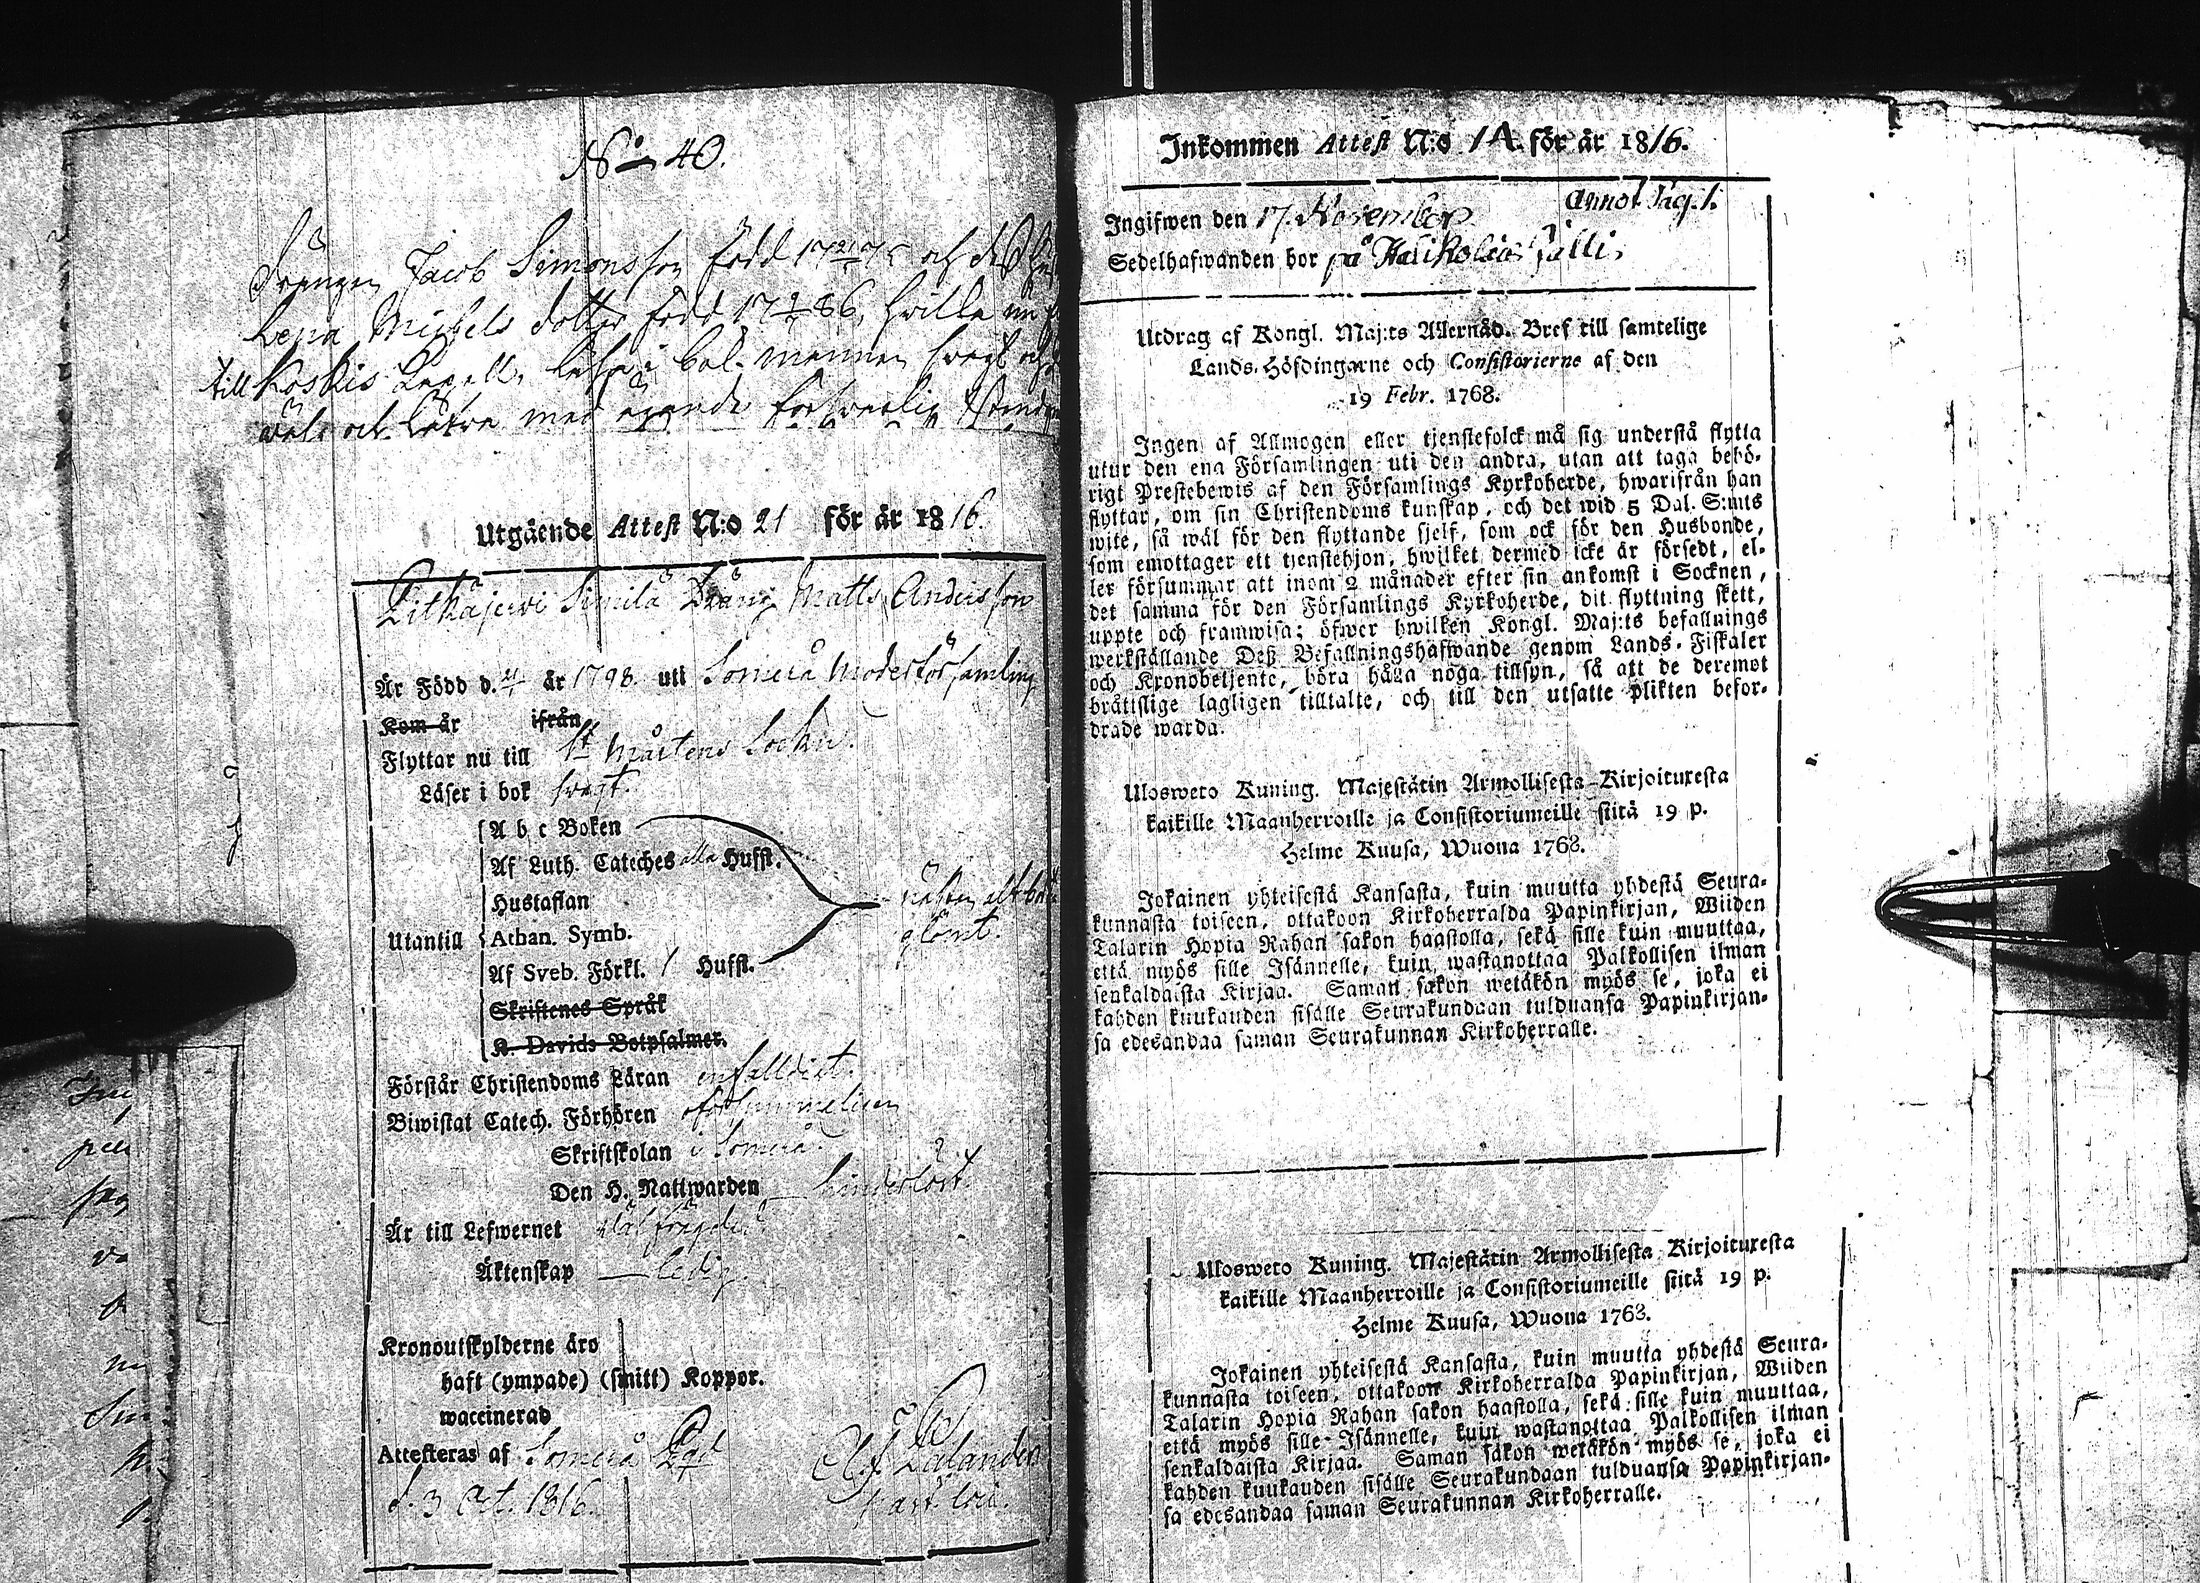 No 40.
Drängen Jacob Simonsson född 17 75 och dess
Lena Michels dotter född 17 86, hvilka nu
till Koskis Capell, läsa i bok mannen svagt och
väl och låfva med ägande försvarlig
Utgående Attest N:o 21 för år 1816.
Pitkäjerwi Simila Dräng Matts Andersson
Är Född d. år 1798. uti Somero Moderförsamling
Kom år ifrån
Flyttar nu till St Mårtens Sockn.
Läser i bok svagt.
A b c Boken
Af Luth. Cateches alla Hufst.
Hustaflan
Utantill Athan. Symb.
Af Sveb. Förkl. 1 Hufst.
nästan allt
glömt.
Skriftenes Språk
K. Davids Botpsalmer.
Förstår Christendoms Läran enfalldigt.
Biwistat Catech. Förhören oförsummeligen
Skriftskolan i Somero
Den H. Nattwarden hinderlöst.
Är till Lefwernet wälfrägdad
Äktenskap ledig.
Kronoutskylderne äro
haft (ympade) (smitt) Koppor.
waccinerad
Attesteras af Somero
d. 3 Oct. 1816.
Inkommen Attest N:o 1A. för år 1816.
Annot. Pag. 1.
Ingifwen den 17. November
Sedelhafwanden bor på
Utdrag af Kongl. Maj:ts Allernåd. Bref till samtelige
Lands-Höfdingarne och Consistorierne af den
19 Febr. 1768.
Ingen af Allmogen eller tjenstefolck må sig understå flytta
utur den ena Församlingen uti den andra, utan att taga behö-
rigt Prestebewis af den Församlings Kyrkoherde, hwarifrån han
flyttar, om sin Christendoms kunskap, och det wid 5 Dal. S:mts
wite, så wäl för den flyttande sjelf, som ock för den Husbonde,
som emottager ett tjenstehjon, hwilket dermed icke är försedt, el-
ler försummar att inom 2 månader efter sin ankomst i Socknen,
det samma för den Församlings Kyrkoherde, dit flyttning skett,
uppte och framwisa; öfwer hwilken Kongl. Maj:ts befallnings
werkställande Deß Befallningshafwande genom Lands-Fiskaler
och Kronobetjente, böra hålla noga tillsyn, så att de deremot
bråttslige lagligen tilltalte, och till den utsatte plikten befor-
drade warda.
Ulosweto Kuning. Majestätin Armollisesta Kirjoituxesta
kaikille Maanherroille ja Consistoriumeille siitä 19 p.
Helme Kuusa, Wuona 1768.
Jokainen yhteisestä Kansasta, kuin muutta yhdestä Seura-
kunnasta toiseen, ottakoon Kirkoherralda Papinkirjan, Wiiden
Talarin Hopia Rahan sakon haastolla, sekä sille kuin muuttaa,
että myös sille Isännelle, kuin wastanottaa Palkollisen ilman
senkaldaista Kirjaa. Saman sakon wetäkön myös se, joka ei
kahden kuukauden sisälle Seurakundaan tulduansa Papinkirjan-
sa edesandaa saman Seurakunnan Kirkoherralle.
Ulosweto Kuning. Majestätin Armollisesta Kirjoituxesta
kaikille Maanherroille ja Consistoriumeille siitä 19 p.
Helme Kuusa, Wuona 1768.
Jokainen yhteisestä Kansasta, kuin muutta yhdestä Seura-
kunnasta toiseen, ottakoon Kirkoherralda Papinkirjan, Wiiden
Talarin Hopia Rahan sakon haastolla, sekä sille kuin muuttaa,
että myös sille Isännelle, kuin wastanottaa Palkollisen ilman
senkaldaista Kirjaa. Saman sakon wetäkön myös se, joka ei
kahden kuukauden sisälle Seurakundaan tulduansa Papinkirjan-
sa edesandaa saman Seurakunnan Kirkoherralle.